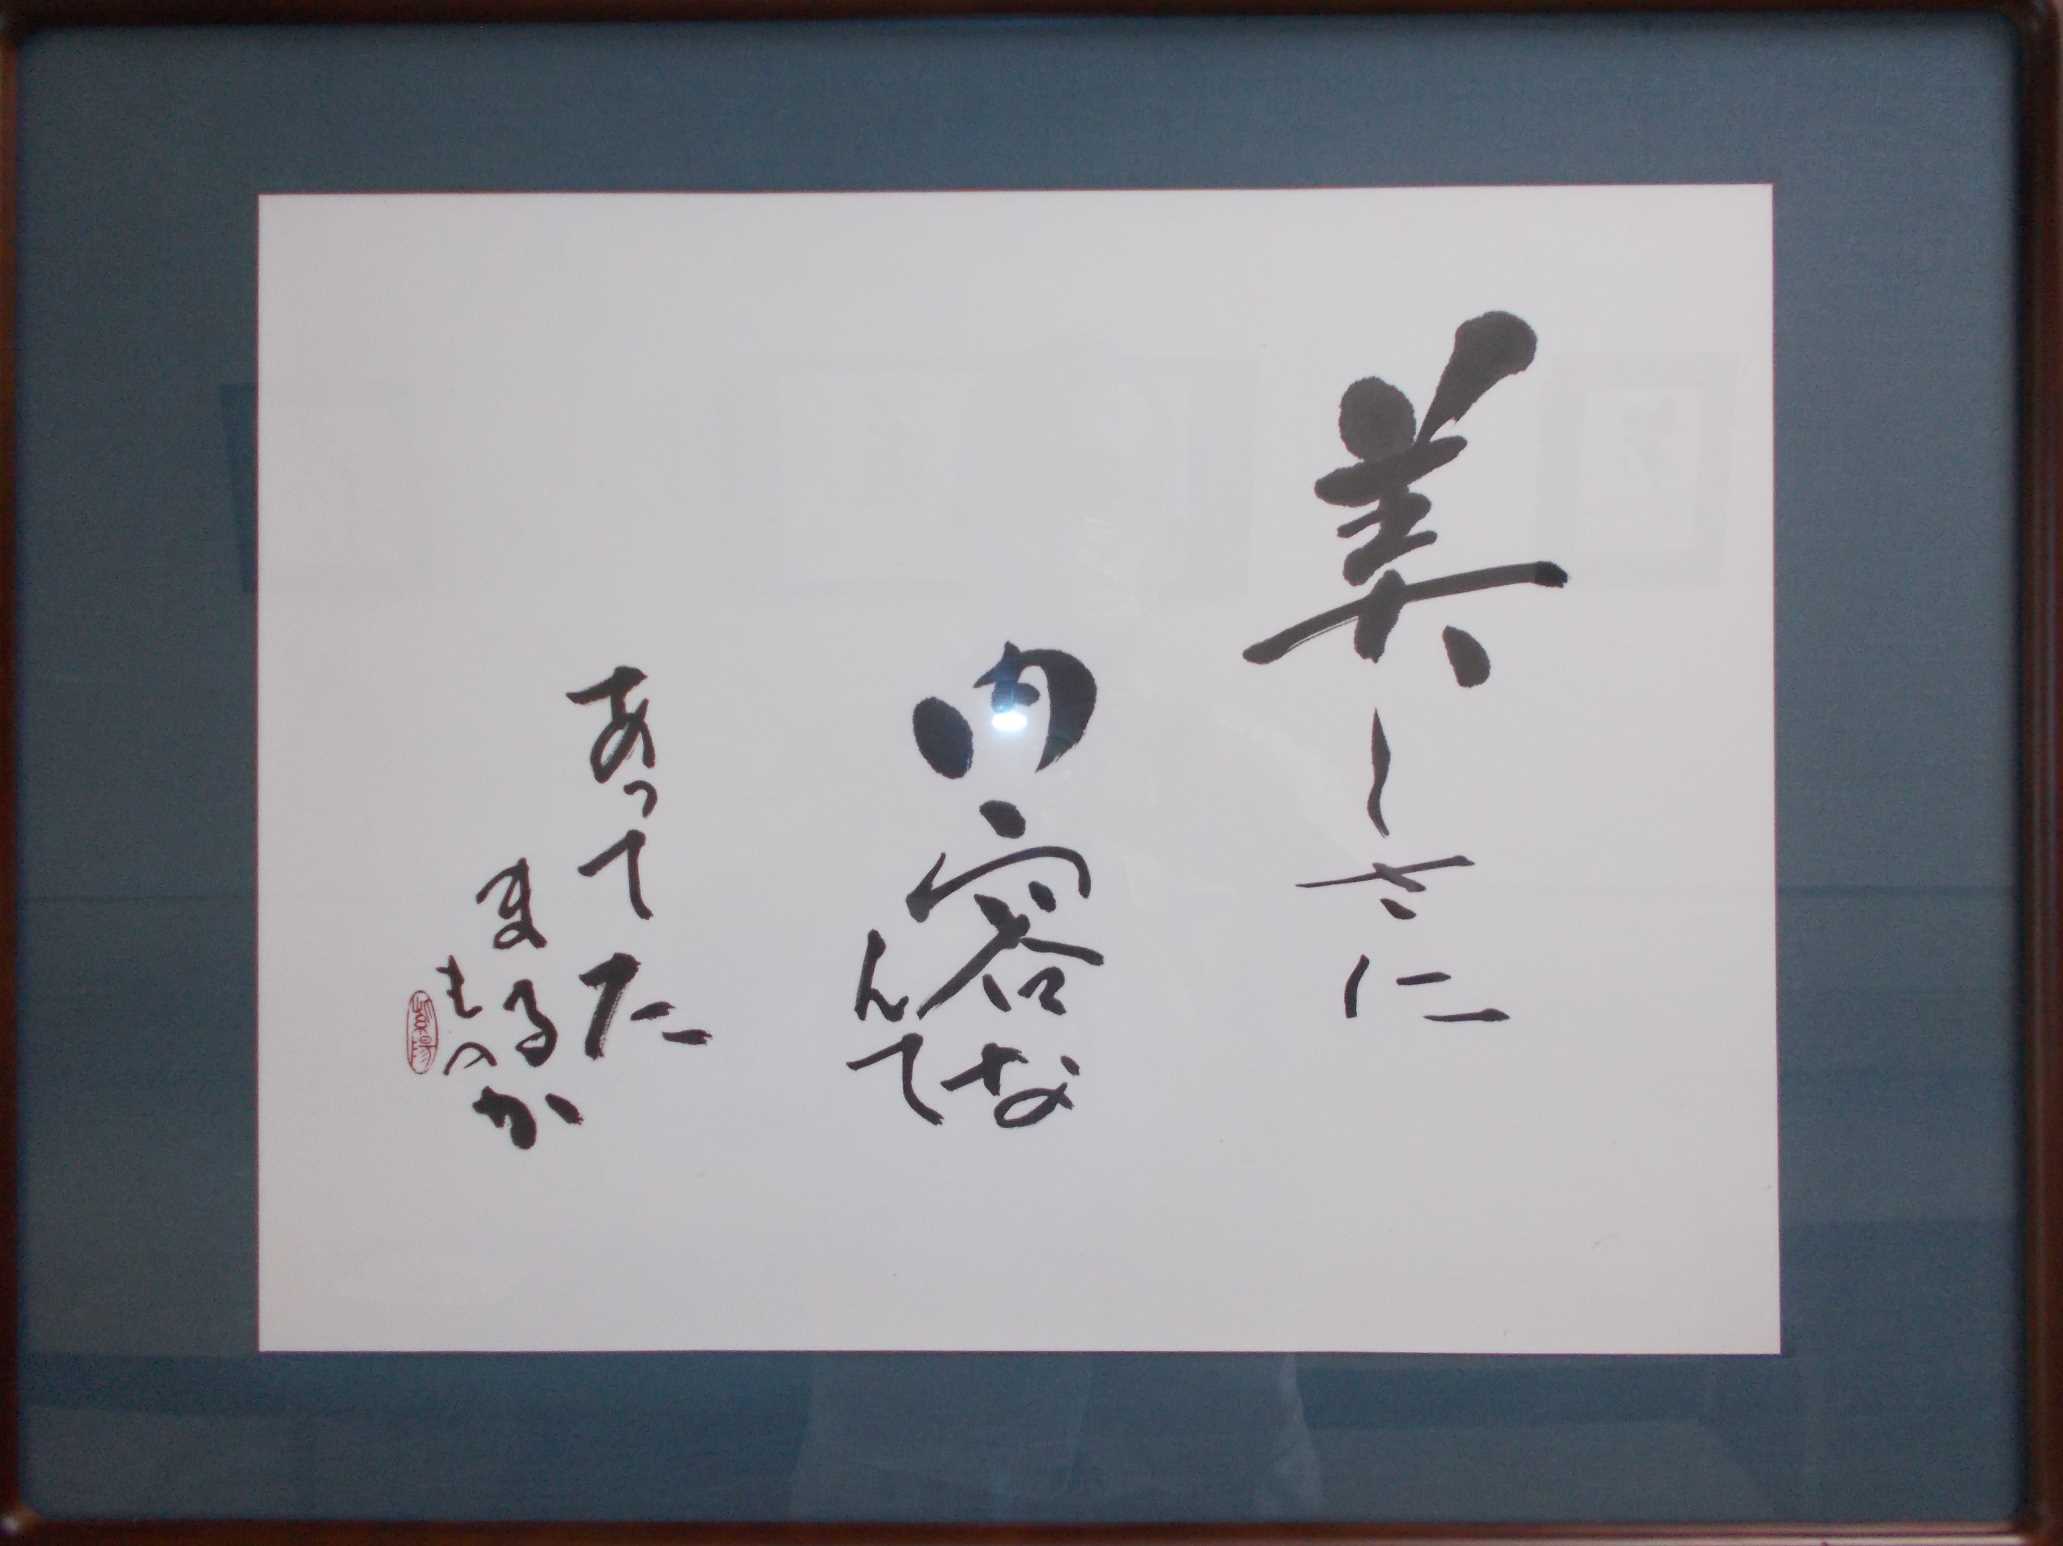 美しさに
内容な
んて
あってた
まるか